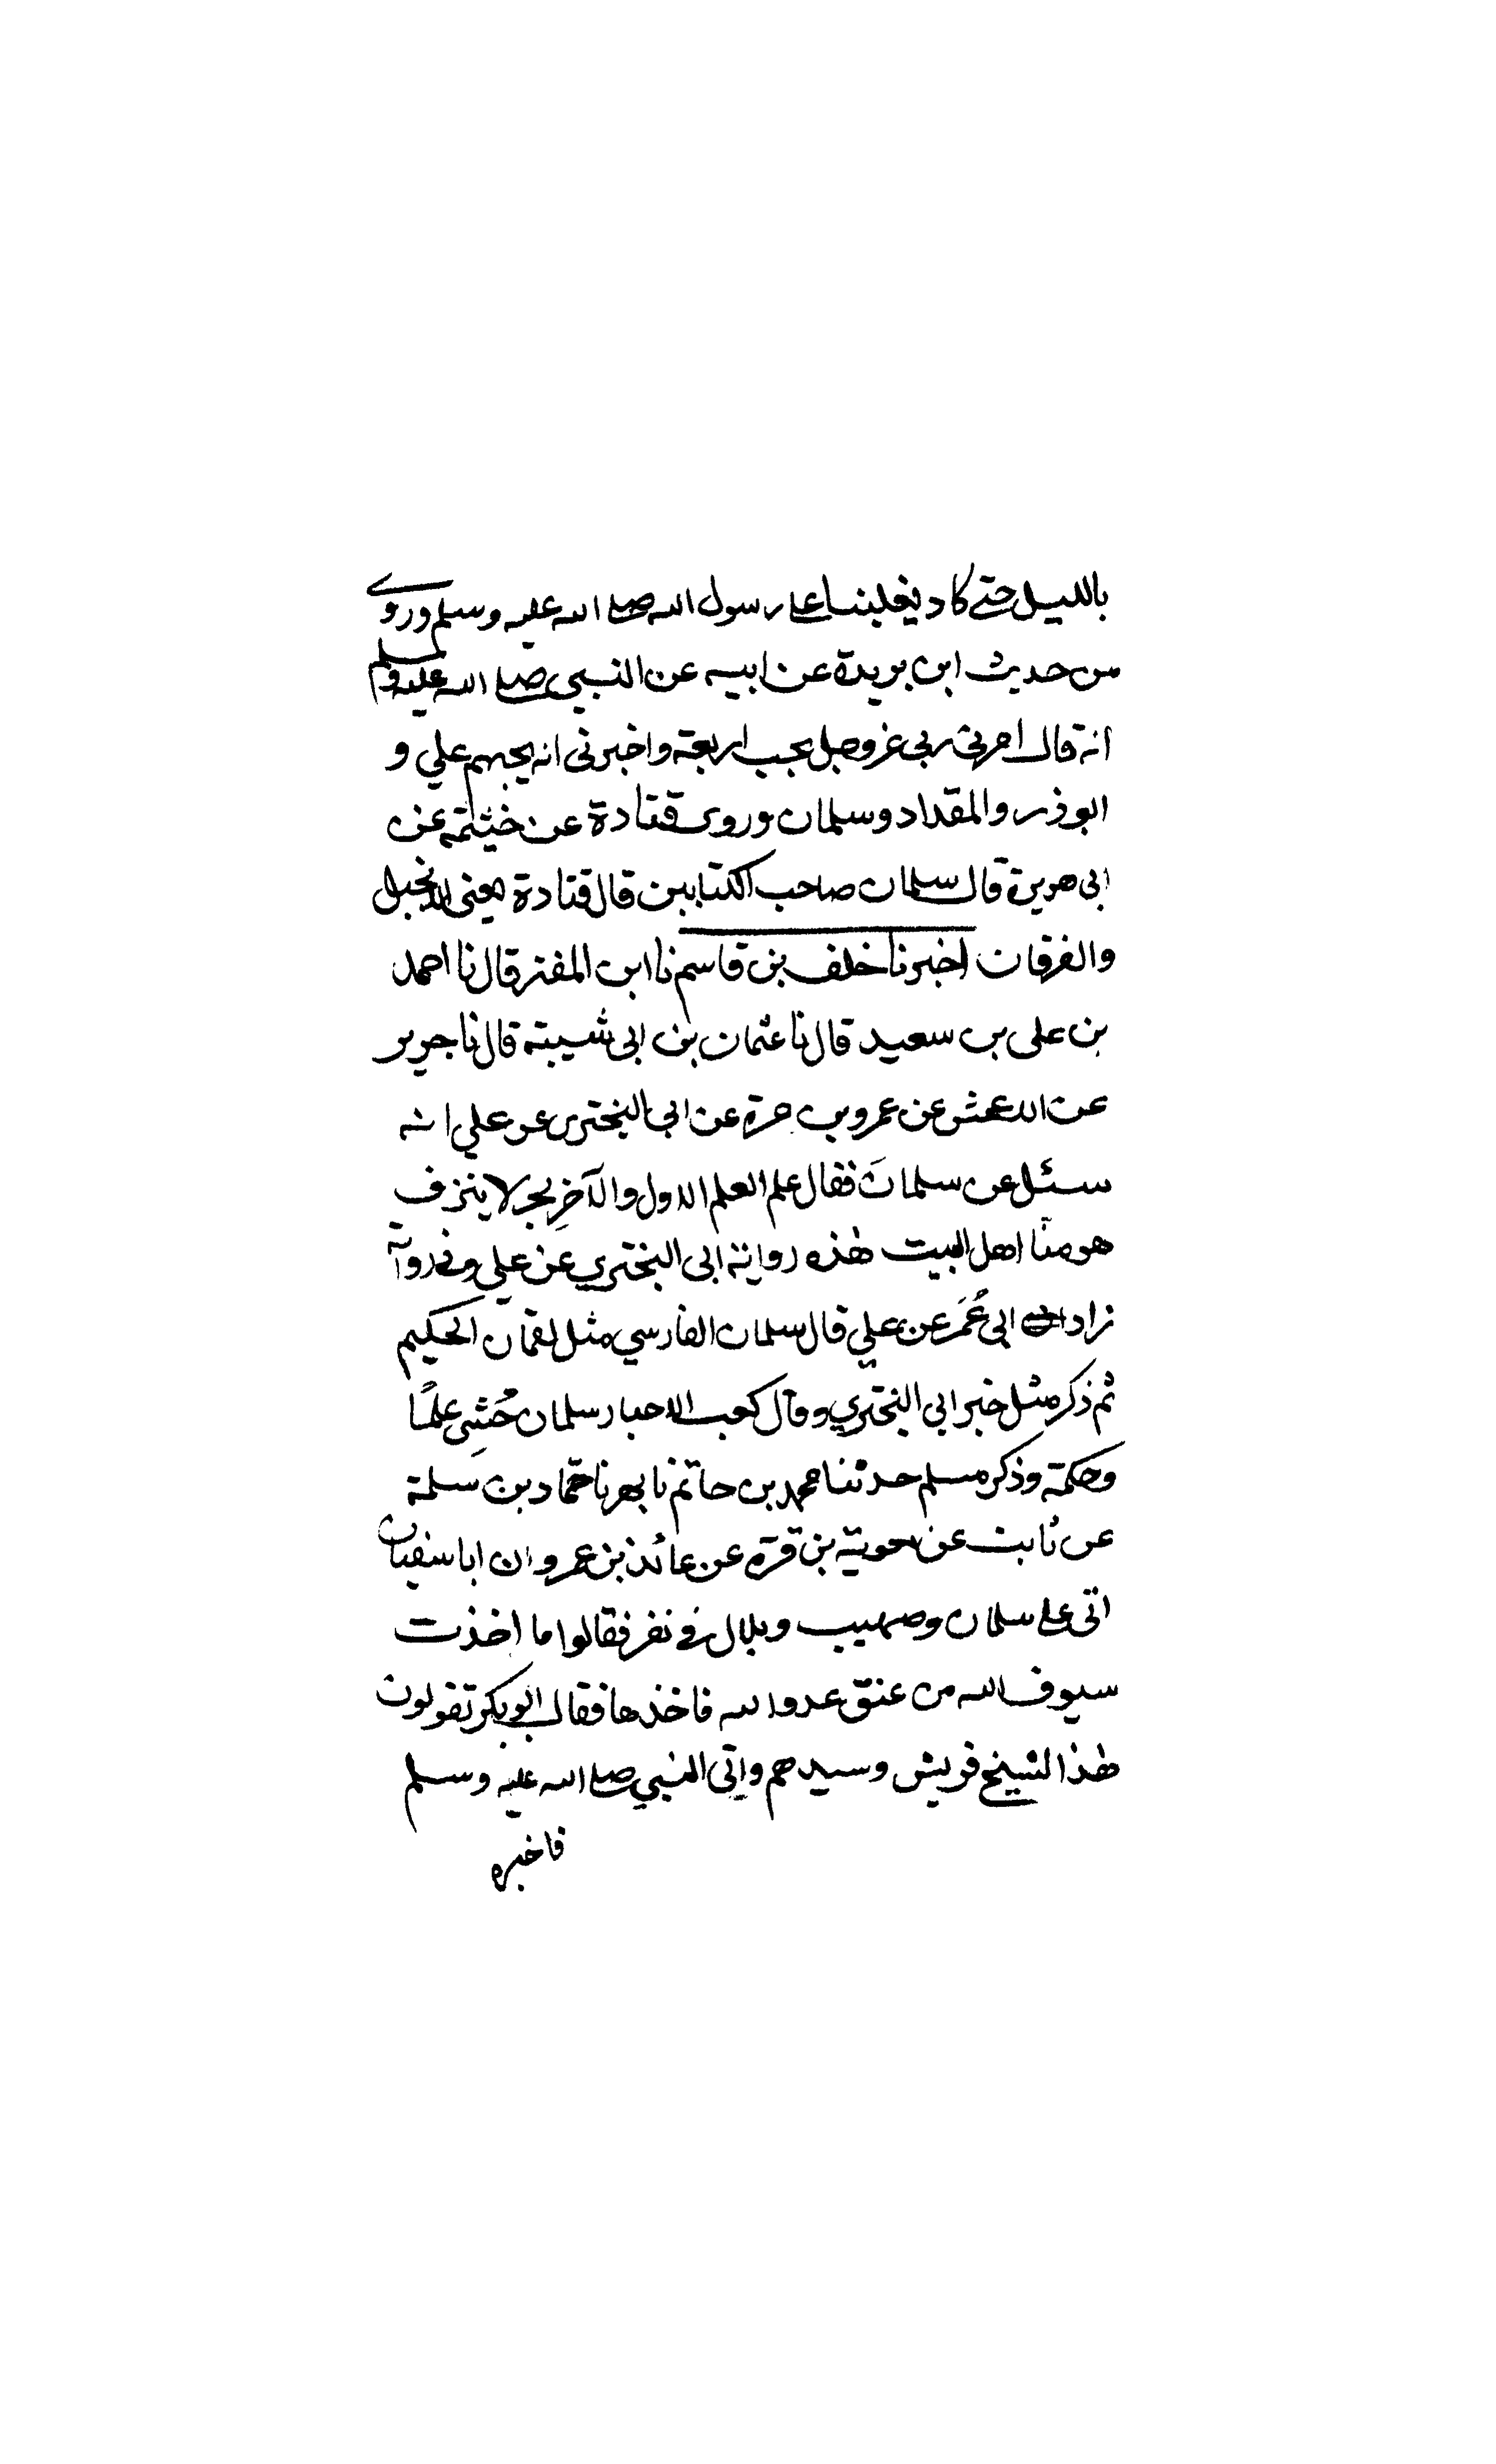 بالليل حتى كاد يغلبنا على رسول الله صلى الله عليه وسلم وروى
من حديث ابن بريدة عن ابيه عن النبي صلى الله عليه وسلم
انه قال امرني ربي عز وجل بحب اربعة واخبرني انه يحبهم علي و
ابوذر والمقداد وسلمان وروى قتادة عن خيثمة عن
ابي هريرة قال سلمان صاحب الكتابين قال قتادة يعني الانجيل
والفرقان اخبرنا خلف بن قاسم نا ابن المفسر قال نا احمد
بن علي بن سعيد قال نا عثمان بن ابي شيبة قال نا جرير
عن الاعمش عن عمرو بن مرة عن ابي البختري عن علي انه
سئل عن سلمان فقال علم العلم الاول والآخر بحر لا ينزف
هو منا اهل البيت هذه رواية ابي البختري عن علي وفي رواية
زاذان ابي عُمَر عن علي قال سلمان الفارسي مثل لقمان الحكيم
ثم ذكر مثل خبر ابي البختري وقال كعب الاحبار سلمان حُشِي علمًا
وحكمة وذكر مسلم حدثنا محمد بن حاتم نا بهز نا حماد بن سلمة
عن ثابت عن معوية بن قرة عن عائذ بن عمرو ان ابا سفيان
اتى على سلمان وصهيب وبلال في نفر فقالوا ما اخذت
سيوف الله من عنق عدو الله فاخذها فقال ابوبكر تقولون
هذا لشيخ قريش وسيدهم واتى النبي صلى الله عليه وسلم
فاخبره